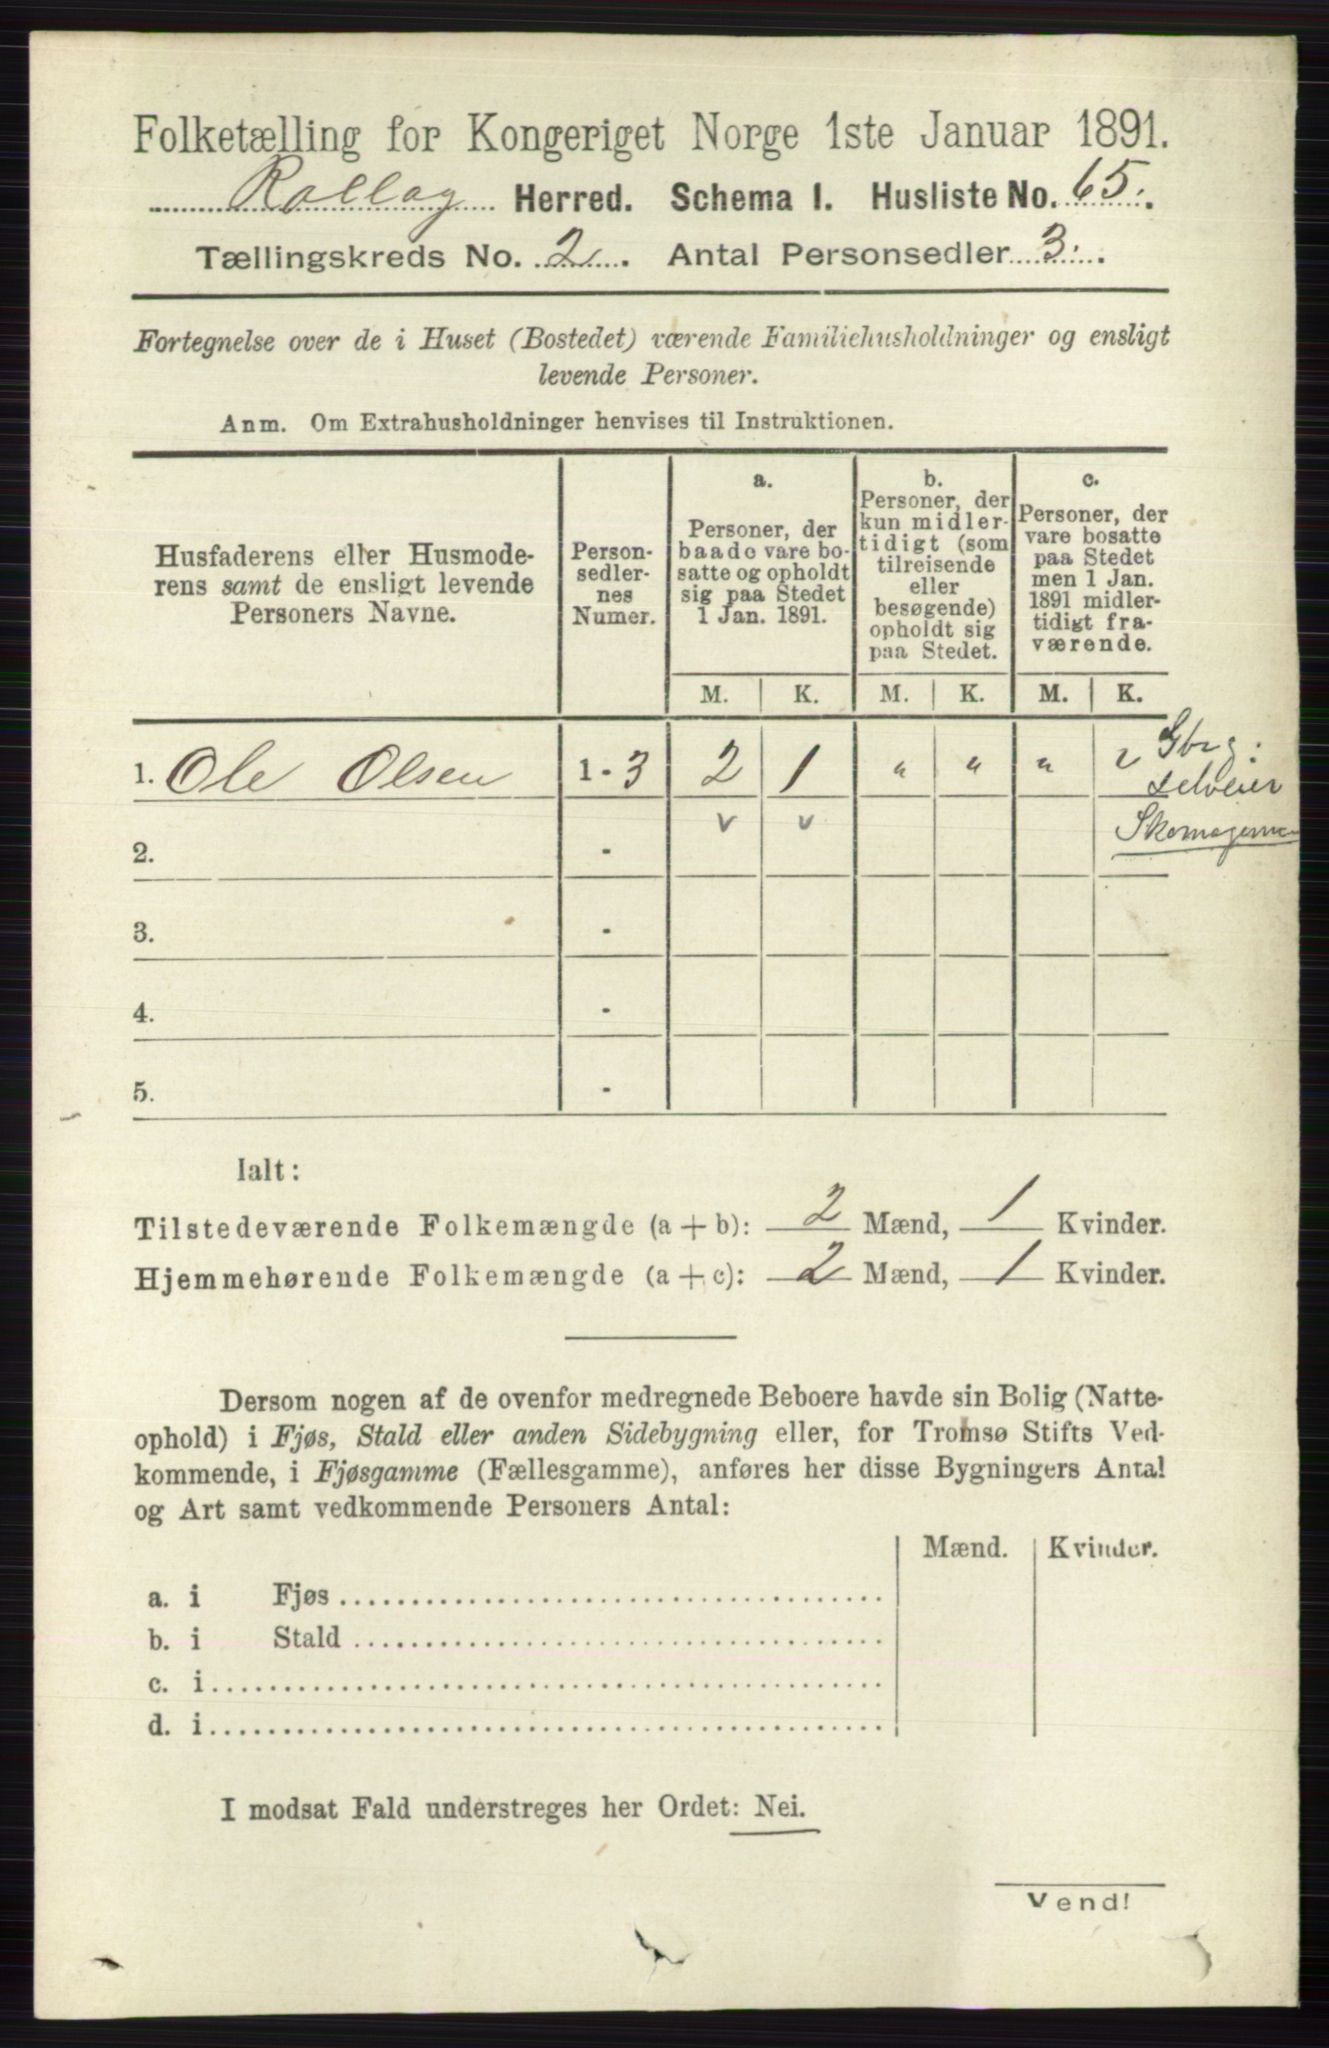 Folketælling for Kongeriget Norge 1ste Januar 1891.
Rollag Herred. Schema I. Husliste No. 65.
Tællingskreds No. 2. Antal Personsedler 3.
Fortegnelse over de i Huset (Bostedet) værende Familiehusholdninger og ensligt
levende Personer.
Anm. Om Extrahusholdninger henvises til Instruktionen.
Husfaderens eller Husmode-
rens samt de ensligt levende
Personers Navne.
Person-
sedler-
nes
Numer.
a.
Personer, der
baade vare bo-
satte og opholdt
sig paa Stedet
1 Jan. 1891.
b.
Personer, der
kun midler-
tidigt (som
tilreisende
eller
besøgende)
opholdt sig
paa Stedet.
c.
Personer, der
vare bosatte
paa Stedet
men 1 Jan.
1891 midler-
tidigt fra-
værende.
M. K. M. K. M. K.
1. Ole Olsen 1 - 3 2 1 " " " "
Gbrg.
selveier
Skomager
v v
2. -
3. -
4. -
5. -
Ialt:
Tilstedeværende Folkemængde (a + b): 2 Mænd, 1 Kvinder.
Hjemmehørende Folkemængde (a + c): 2 Mænd, 1 Kvinder.
Dersom nogen af de ovenfor medregnede Beboere havde sin Bolig (Natte-
ophold) i Fjøs, Stald eller anden Sidebygning eller, for Tromsø Stifts Ved-
kommende, i Fjøsgamme (Fællesgamme), anføres her disse Bygningers Antal
og Art samt vedkommende Personers Antal:
Mænd. Kvinder.
a. i Fjøs
b. i Stald
c. i
d. i
I modsat Fald understreges her Ordet: Nei.
Vend!